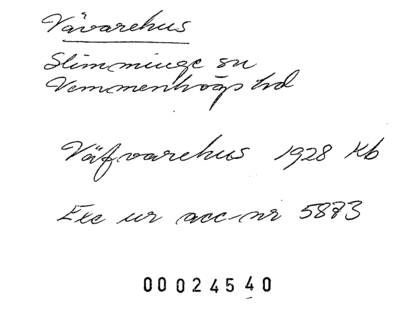 Vävarehus
Slimminge sn
Vemmenhögs hd
Väfvarehus 1928 Kb
Exc ur acc-nr 5883
00024540